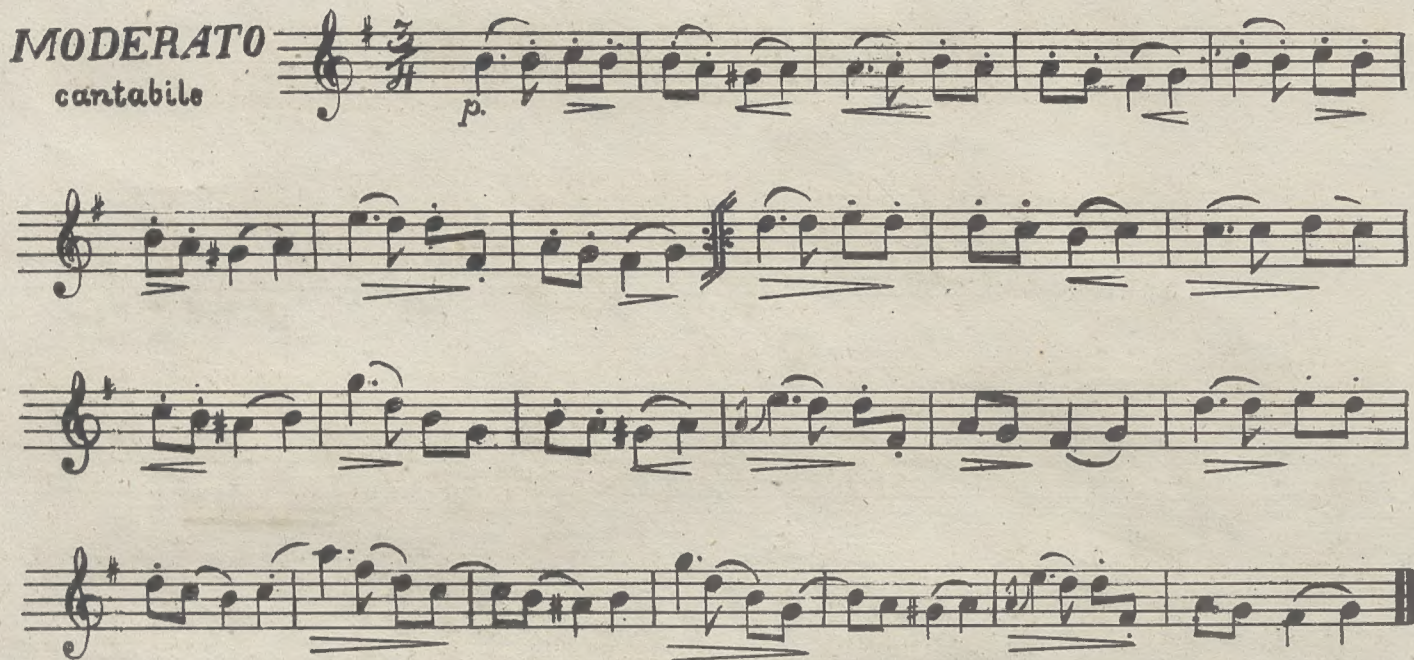 MODERATO
cantabile
3
4
p.